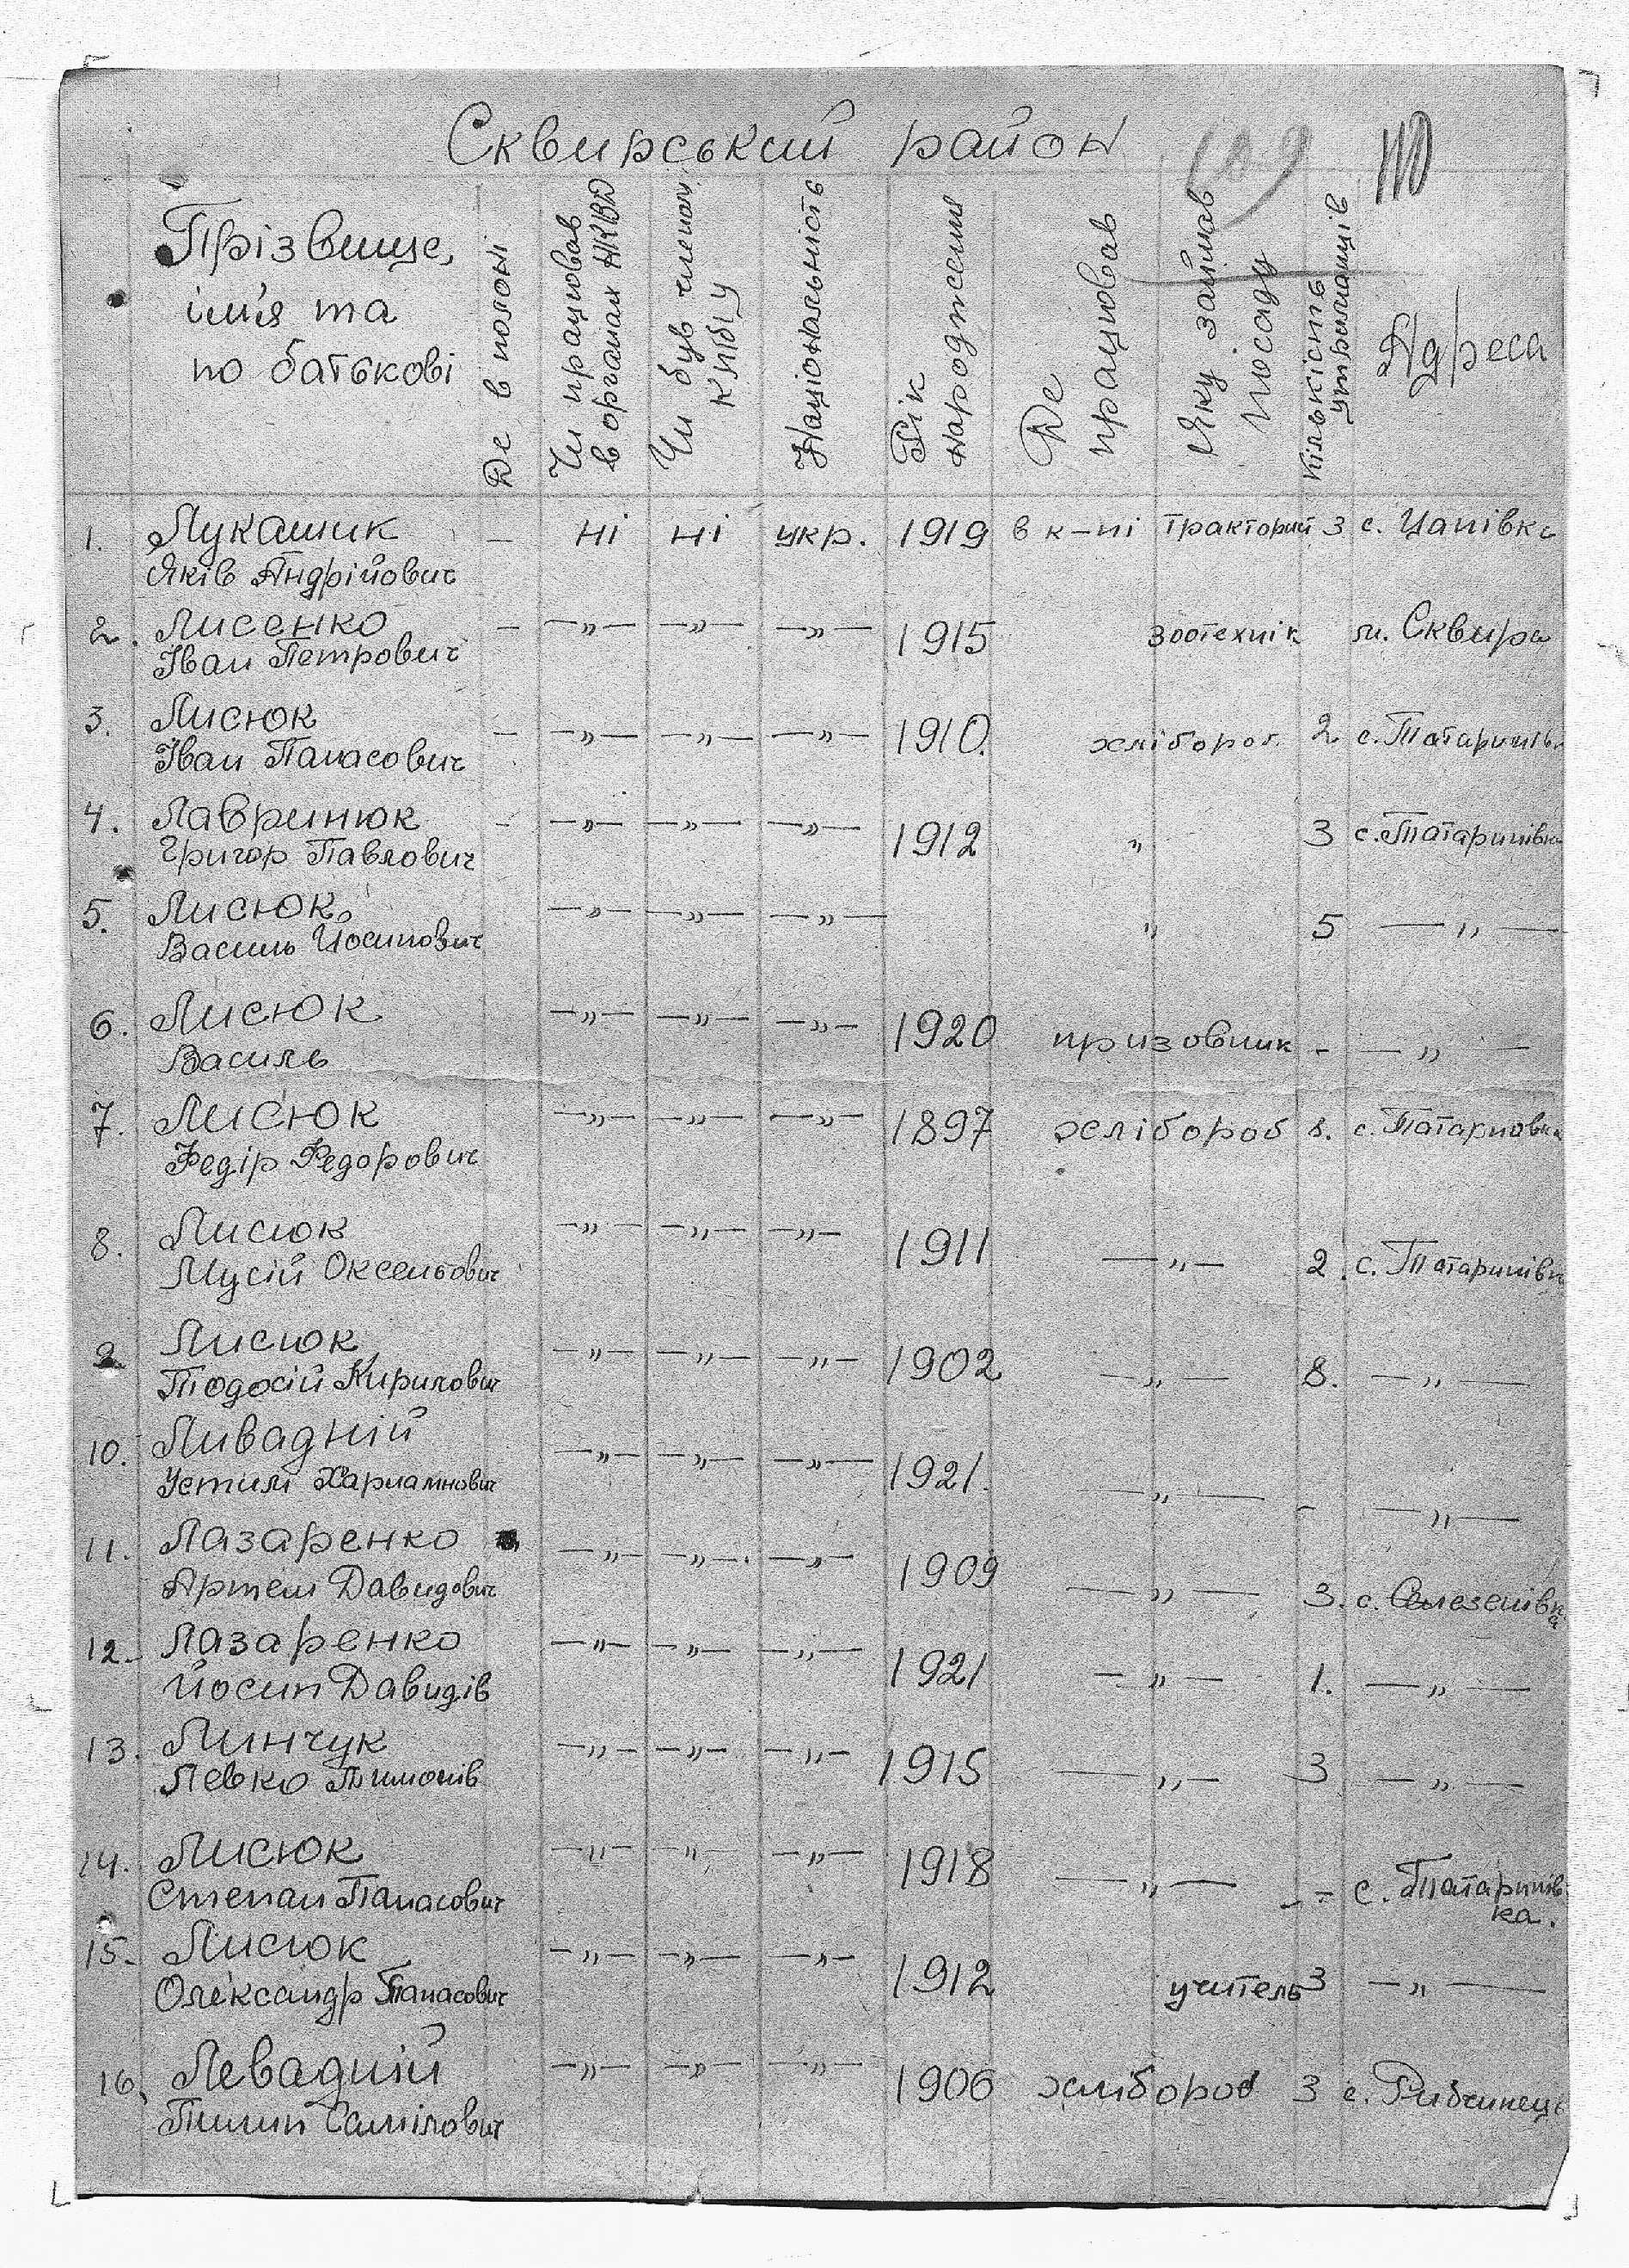 Сквирський район 109 110
Прізвище, ім'я та по батькові
Де в полоні
Чи працював в органах НКВД
Чи був членом КП(б)У
Національність
Рік народження
Де працював
Яку займав посаду
Кількість утриманців
Адреса
1. Лукашик – ні ні укр. 1919 в к-пі тракторист 3 с. Цапівка
Яків Андрійович
2. Лисенко – –„– –„– –„– 1915 зоотехнік м. Сквира
Іван Петрович
3. Лисюк – –„– –„– –„– 1910. хлібороб 2 с. Татаринівка
Іван Панасович
4. Лавринюк – –„– –„– –„– 1912 „ 3 с. Татаринівка
Григор Павлович
5. Лисюк –„– –„– –„– „ 5 –„–
Василь Йосипович
6. Лисюк –„– –„– –„– 1920 призовник – –„–
Василь
7. Лисюк –„– –„– –„– 1897 хлібороб 8. с. Татариновка
Федір Федорович
8. Лисюк –„– –„– –„– 1911 –„– 2. с. Татаринівка
Мусій Оксентович
9. Лисюк –„– –„– –„– 1902 –„– 8. –„–
Тодосій Кирилович
10. Ливадній –„– –„– –„– 1921. –„– – –„–
Устим Харлампович
11. Лазаренко –„– –„– –„– 1909 –„– 3. с. Селезенівка
Артем Давидович
12. Лазаренко –„– –„– –„– 1921 –„– 1. –„–
Йосип Давидів
13. Линчук –„– –„– –„– 1915 –„– 3 –„–
Левко Тимошів
14. Лисюк –„– –„– –„– 1918 –„– – – с. Татаринівка.
Степан Панасович
15. Лисюк –„– –„– –„– 1912 учитель 3 –„–
Олександр Панасович
16. Левадній –„– –„– –„– 1906 хлібороб 3 с. Рибчинець
Пилип Самілович